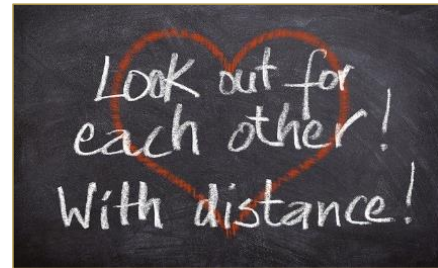 Look out for
each other!
With distance!